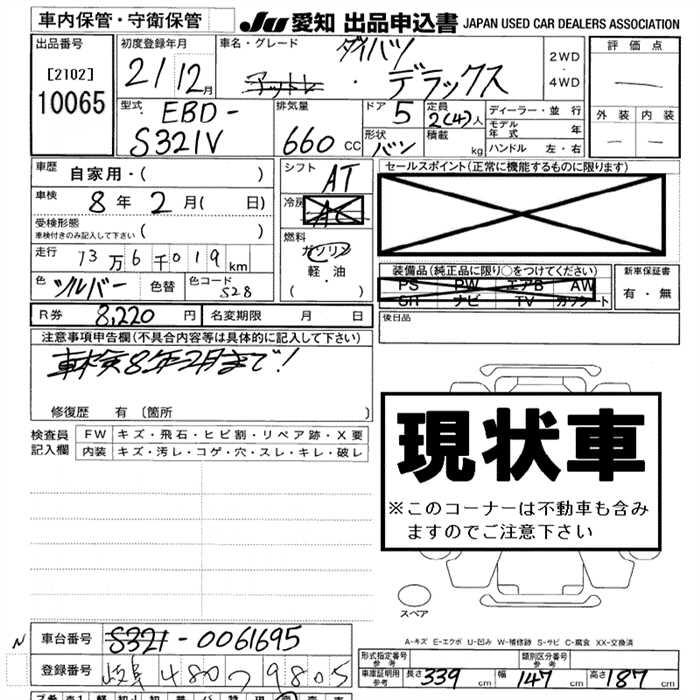 車内保管・守衛保管
JU 愛知 出品申込書 JAPAN USED CAR DEALERS ASSOCIATION
出品番号
[2102]
10065
初度登録年月
21 12月
車名・グレード
ダイハツ
デラックス
2WD
・
4WD
評価点
外装 内装
型式
EBD-
S321V
排気量
660 CC
ドア 5
形状 バン
定員 2(4)人
積載 kg
ディーラー・並行
モデル年式 年
ハンドル 左・右
車歴 自家用・( )
車検 8年 2月( 日)
受検形態
車検付きのみ記入して下さい ( )
走行 13万6千019km
色 シルバー 色替 色コード S28
シフト AT
冷房 AC
燃料
ガソリン
軽・油
( ・ )
セールスポイント(正常に機能するものに限ります)
装備品(純正品に限り○をつけてください)
PS PW エアB AW
SR ナビ TV カワシート
新車保証書
有・無
後日品
R券 8,220円 名変期限 月 日
注意事項申告欄(不具合内容等は具体的に記入して下さい)
車検8年2月まで!
修復歴 有 〔箇所 〕
検査員
記入欄
FW キズ・飛石・ヒビ割・リペア跡・X要
内装 キズ・汚レ・コゲ・穴・スレ・キレ・破レ
現状車
※このコーナーは不動車も含み
ますのでご注意下さい
スペア
A-キズ E-エクボ U-凹み W-補修跡 S-サビ C-腐食 XX-交換済
N
車台番号 S321-0061695
登録番号 岐阜 480 つ 9805
形式指定番号
参考
類別区分番号
参考
車庫証明用
参考
長さ 339cm 幅 147cm 高さ 187cm